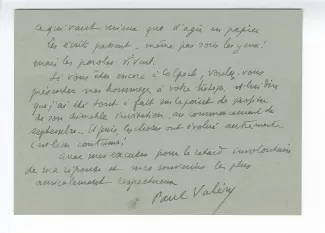 ce qui vaut mieux que d'agir en papier
les écrits passent – même pas sous les yeux!
mais les paroles vivent.
Si vous êtes encore à, voulez-vous
présenter mes hommages à votre hôtesse, et lui dire
que j'ai été tout à fait sur le point de profiter
de son aimable invitation, au commencement de
septembre. Et puis, les choses ont évolué autrement
Avec mes excuses pour le retard involontaire
de ma réponse et mes souvenirs les plus
amicalement respectueux
Paul Valéry